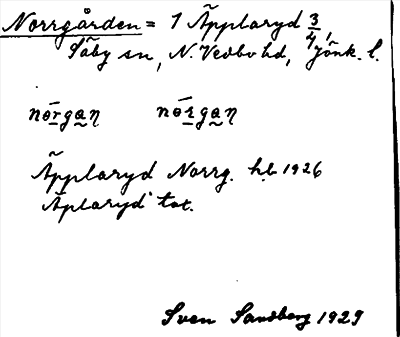 Norrgården = 1 Äpplaryd 3/4,
Säby sn, N. Vedbo hd, Jönk. l.
nørgaŋ nørgaŋ
Äpplaryd Norrg. hb 1926
Äplaryd tot.
Sven Sandberg 1929